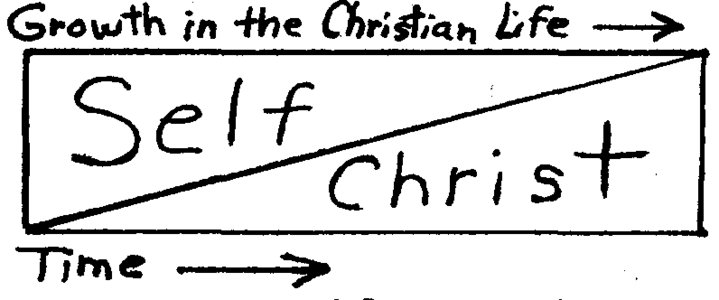 Growth in the Christian Life
Self
Christ
Time